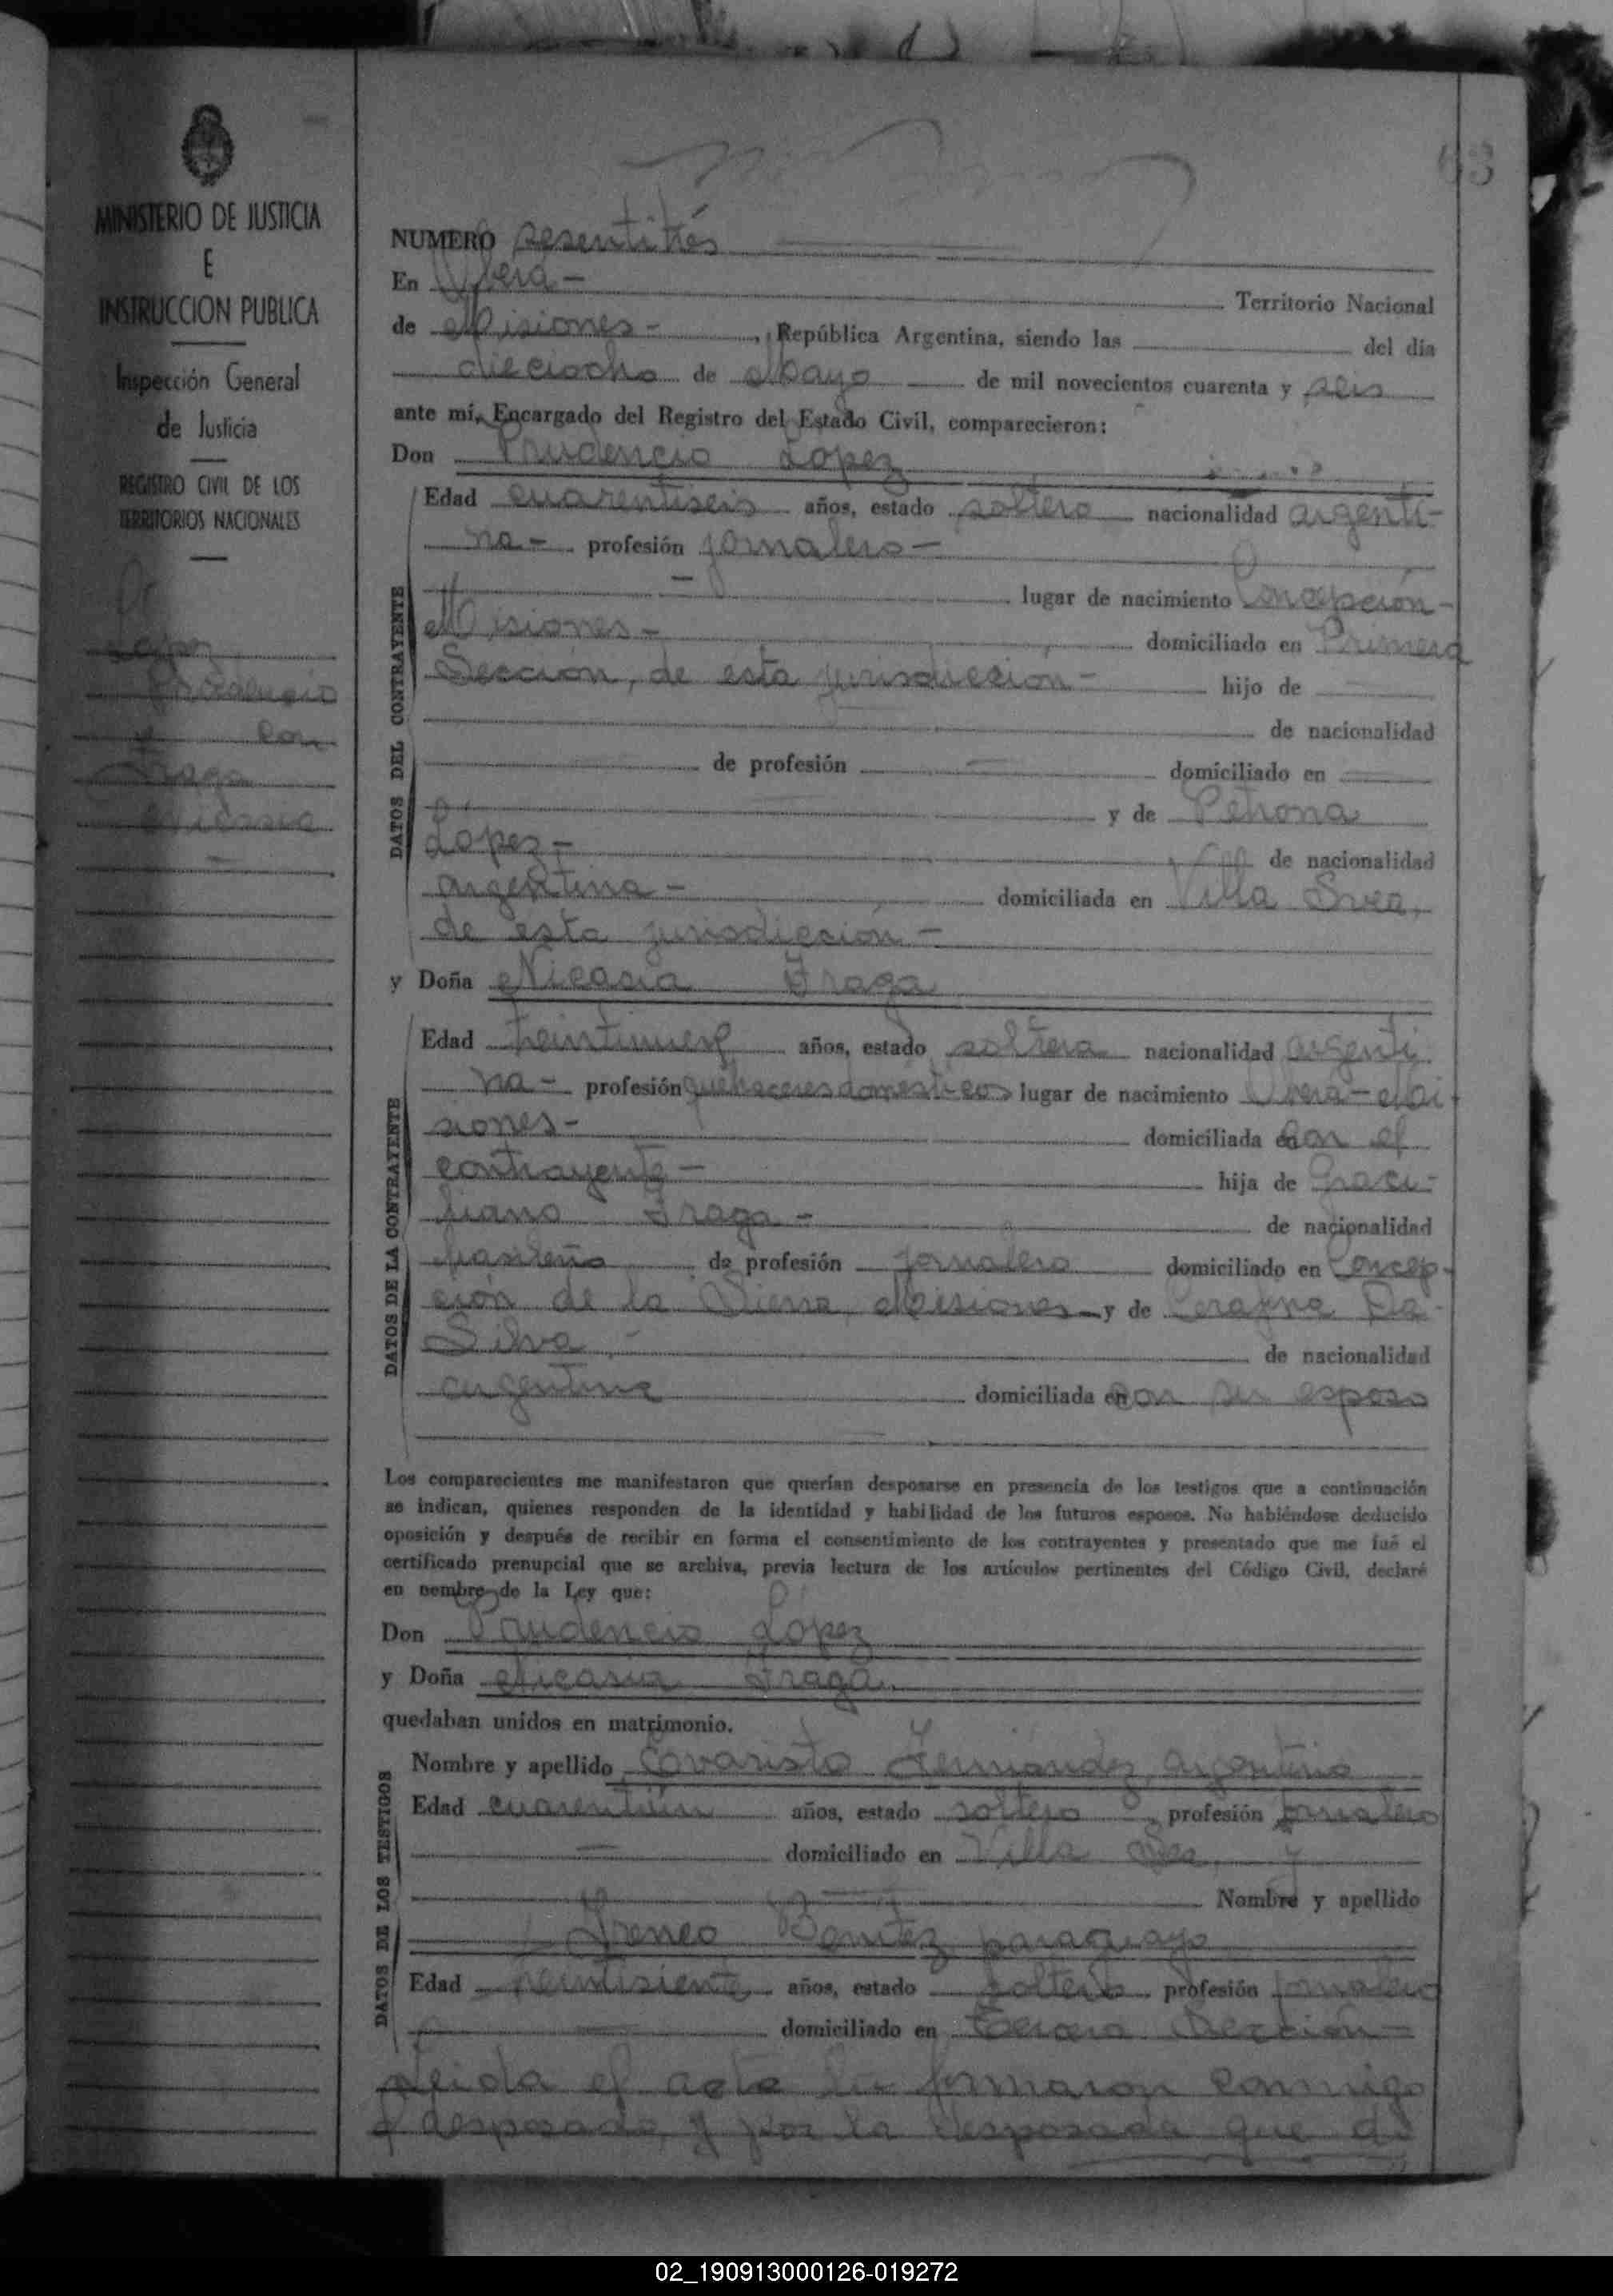 63
MINISTERIO DE JUSTICIA
E
INSTRUCCION PUBLICA
Inspección General
de Justicia
REGISTRO CIVIL DE LOS
TERRITORIOS NACIONALES
Lopez
y con
Fraga
Nicasia
NUMERO sesentitrés
En Oberá - Territorio Nacional
de Misiones - , República Argentina, siendo las del día
dieciocho de Mayo de mil novecientos cuarenta y seis
ante mí, Encargado del Registro del Estado Civil, comparecieron:
Don Prudencio Lopez
DATOS DEL CONTRAYENTE
Edad cuarentiseis años, estado soltero nacionalidad argenti-
na - profesión jornalero -
lugar de nacimiento Concepción -
Misiones - domiciliado en Primera
Sección, de esta jurisdicción - hijo de
de nacionalidad
de profesión domiciliado en
y de Petrona
Lopez - de nacionalidad
argentina - domiciliada en Villa Svea,
de esta jurisdicción -
y Doña Nicasia Fraga
DATOS DE LA CONTRAYENTE
Edad años, estado soltera nacionalidad argenti
na - profesión quehaceres domésticos lugar de nacimiento Oberá - Mi
siones - domiciliada en con el
contrayente - hija de
Fraga - de nacionalidad
brasileña de profesión jornalero domiciliado en Concep-
ción de la Sierra, Misiones y de Da
Silva - de nacionalidad
argentina domiciliada en con su esposo
Los comparecientes me manifestaron que querían desposarse en presencia de los testigos que a continuación
se indican, quienes responden de la identidad y habilidad de los futuros esposos. No habiéndose deducido
oposición y después de recibir en forma el consentimiento de los contrayentes y presentado que me fué el
certificado prenupcial que se archiva, previa lectura de los artículos pertinentes del Código Civil, declaré
en nombre de la Ley que:
Don Prudencio López
y Doña Nicasia Fraga
quedaban unidos en matrimonio.
DATOS DE LOS TESTIGOS
Nombre y apellido Evaristo Fernández, argentino
Edad cuarentiún años, estado soltero profesión jornalero
domiciliado en Villa Svea, y
Nombre y apellido
Ireneo Benítez paraguayo
Edad treintisiente años, estado soltero profesión jornalero
domiciliado en Tercera Sección -
Leída el acta la firmaron conmigo
el desposado, y por la desposada que
02_190913000126-019272